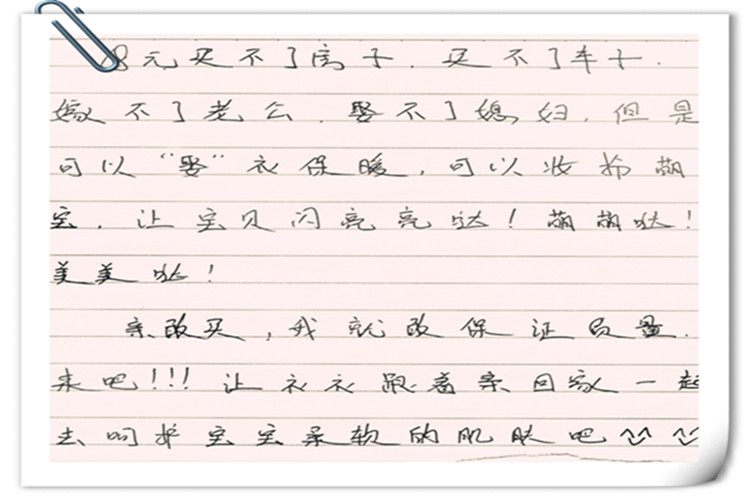 8元买不了房子.买不了车子.
嫁不了老公.娶不了媳妇.但是
可以“娶”衣保暖,可以妆扮萌
宝.让宝贝闪亮亮哒!萌萌哒!
美美哒!
亲改买,我就改保证质量.
来吧!!!让衣衣跟着亲回家一起
去呵护宝宝柔软的肌肤吧^^ ^^